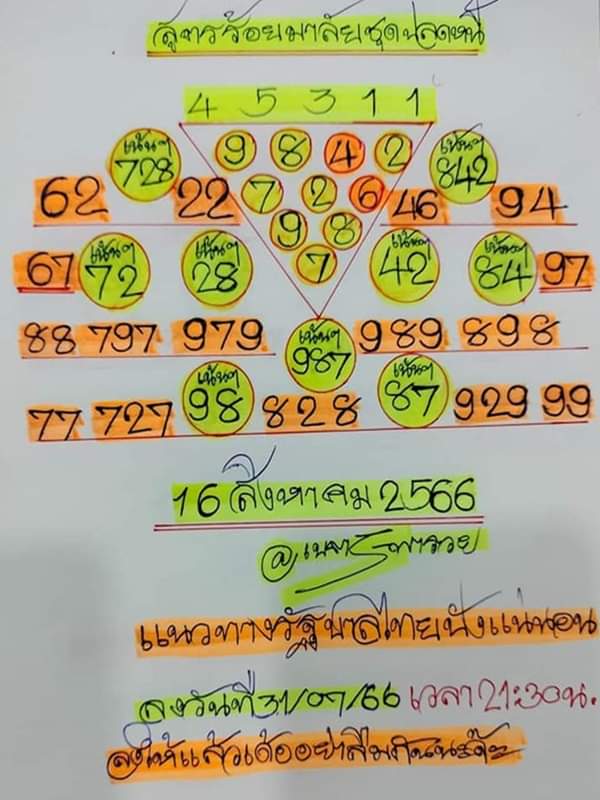 สูตรร้อยมาลัยชุดปลดหนี้
4 5 3 1 1
เน้นๆ 728 9 8 4 2 เน้นๆ 842
62 22 7 2 6 46 94
9 8
67 เน้นๆ 72 เน้นๆ 28 7 เน้นๆ 42 เน้นๆ 84 97
88 797 979 เน้นๆ 987 989 898
77 727 เน้นๆ 98 828 เน้นๆ 87 929 99
16 สิงหาคม 2566
แนวทางรัฐบาลไทยปังแน่นอน
ลงวันที่ 31/07/66 เวลา 21:30น.
ลงให้แล้วเด้ออย่าลืมกันนะจ๊ะ